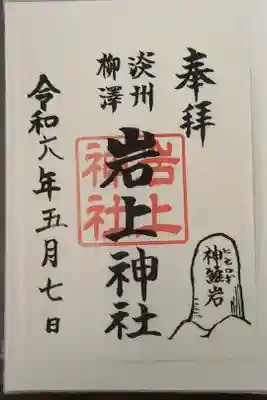 奉拝
淡州
柳澤
岩上神社
岩上
神社
ヒモロギ
神籬岩
令和六年五月七日